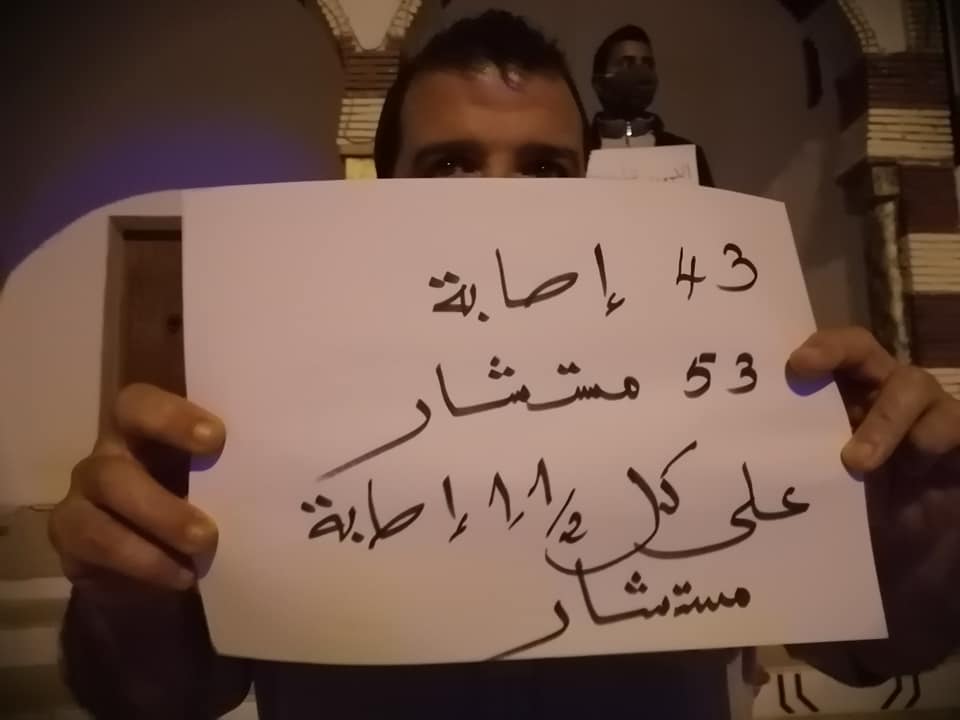 43 إصابة
53 مستشار
على كل 1,1/2 إصابة
مستشار